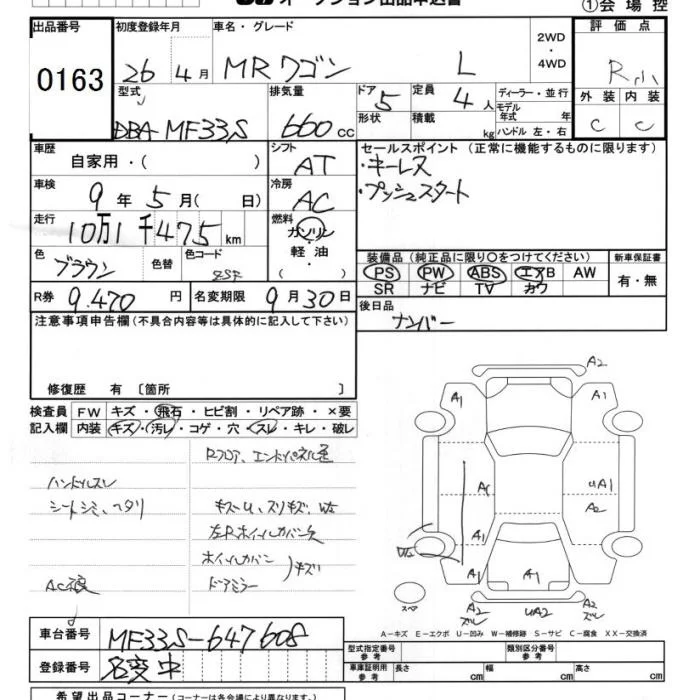 ①会場控
出品番号
0163
初度登録年月
26年 4月
車名・グレード
MRワゴン L
2WD
・
4WD
評価点
R小
外装 内装
C C
型式
DBA-MF33S
排気量
660 CC
ドア
5
形状
定員
4人
積載
kg
ディーラー・並行
モデル年式 年
ハンドル 左・右
車歴
自家用・( )
シフト
AT
車検
9年5月( 日)
冷房
AC
走行
10万1千475km
燃料
ガソリン
軽油
( )
色
ブラウン
色替
色コード
R券
9,470円
名変期限
9月30日
セールスポイント(正常に機能するものに限ります)
・キーレス
・プッシュスタート
装備品(純正品に限り○をつけてください)
PS PW ABS エアB AW
SR ナビ TV カワ
新車保証書
有・無
後日品
ナンバー
注意事項申告欄(不具合内容等は具体的に記入して下さい)
修復歴 有〔箇所 〕
検査員記入欄
FW キズ・飛石・ヒビ割・リペア跡・×要
内装 キズ・汚レ・コゲ・穴・スレ・キレ・破レ
Rフロア、エンドパネル歪
ハンドルスレ
シートシミ、ヘタリ
キズU、スリキズ、W2
左Rホイルカバー欠
ホイルカバー
ドアミラー
キズ
A2
A1
A1
A1
UA1
A2
A1
W2
A1
スペア
A2
ズレ
UA2
A2
ズレ
A－キズ E－エクボ U－凹み W－補修跡 S－サビ C－腐食 XX－交換済
車台番号
MF33S-647608
登録番号
名変中
型式指定番号
参考
類別区分番号
参考
車庫証明用
参考
長さ cm
幅 cm
高さ cm
希望出品コーナー(コーナー名は各会場により異なります。)